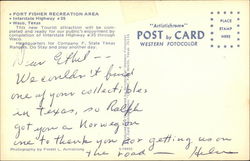 • FORT FISHER RECREATION AREA
• Interstate Highway #35
• Waco, Texas
This new Tourist attraction will be completed and ready for our public's enjoyment by completion of Interstate Highway #35 through Waco.
Headquarters for Company F, State Texas Rangers. Do Stay and play another day.
"Artistichrome"
POST by CARD
WESTERN FOTOCOLOR
PLACE
STAMP
HERE
Dear Ethel --
We couldn't find
one of your collectibles
in Texas, so Ralph
got you a Norwegian
one to thank you for getting us on
the road — Helen
Photography by Forest L. Armstrong